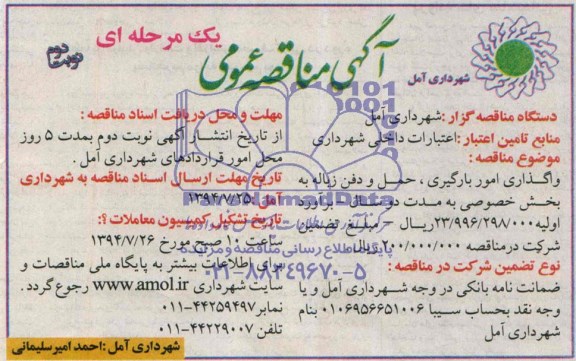 شهرداری آمل
آگهی مناقصه عمومی
یک مرحله ای
نوبت دوم
دستگاه مناقصه گزار : شهرداری آمل
منابع تامین اعتبار : اعتبارات داخلی شهرداری
موضوع مناقصه :
واگذاری امور بارگیری ، حمل و دفن زباله به
بخش خصوصی به مدت دو سال - برآورد
اولیه ۲۳/۹۹۶/۲۹۸/۰۰۰ ریال - مبلغ تضمین
شرکت در مناقصه ۲۰۰/۰۰۰/۰۰۰ ریال
نوع تضمین شرکت در مناقصه :
ضمانت نامه بانکی در وجه شهرداری آمل و یا
وجه نقد بحساب سیبا ۰۱۰۶۹۵۶۶۵۱۰۰۶ بنام
شهرداری آمل
مهلت و محل دریافت اسناد مناقصه :
از تاریخ انتشار آگهی نوبت دوم بمدت ۵ روز
محل امور قراردادهای شهرداری آمل .
تاریخ مهلت ارسال اسناد مناقصه به شهرداری
آمل : ۱۳۹۴/۷/۲۵
تاریخ تشکیل کمیسیون معاملات :
ساعت ۱۰ صبح مورخ ۱۳۹۴/۷/۲۶
برای اطلاعات بیشتر به پایگاه ملی مناقصات و
سایت شهرداری www.amol.ir رجوع گردد .
نمابر ۴۴۲۵۹۴۹۷-۰۱۱
تلفن ۴۴۲۲۹۰۰۷-۰۱۱
شهرداری آمل : احمد امیرسلیمانی
پایگاه اطلاع رسانی مناقصه و مزایده
۰۲۱-۸۸۳۴۹۶۷۰-۵